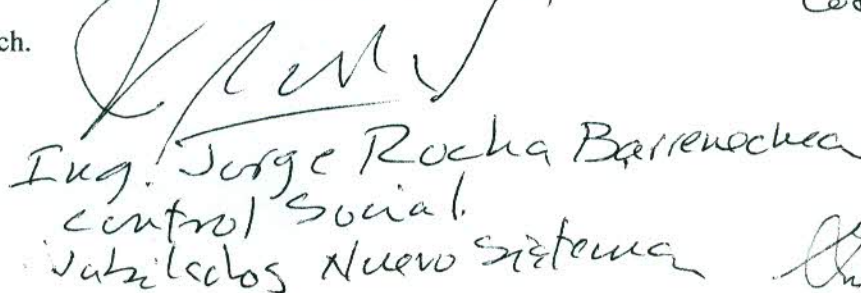 ch.
Ing. Jorge Rocha Barrenechea
Control Social.
Jubilados Nuevo Sistema